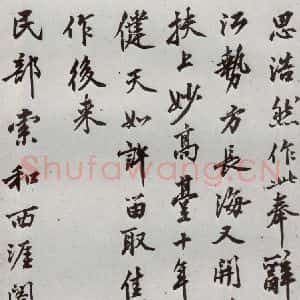 思浩然作此奉辭
江勢方長海又開
扶上妙高臺十年
天如許留取佳
作後来
民部索和西涯閣
Shufawang.CN